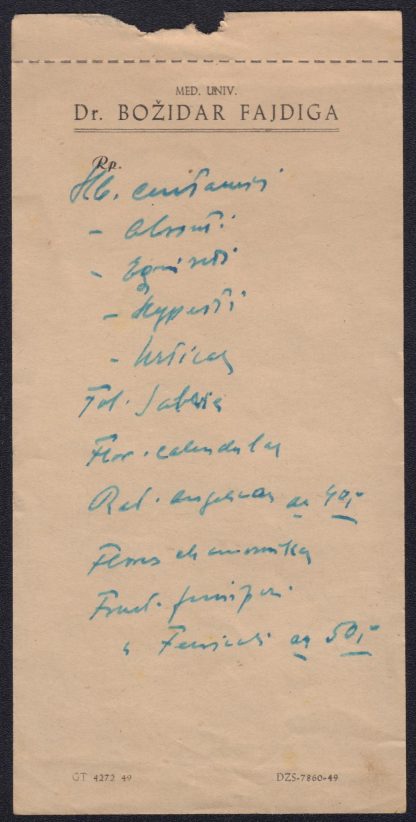 MED. UNIV.
Dr. BOŽIDAR FAJDIGA
Rp.
Hb. centauri
- Absinti
- Equiseti
- Hyperici
- Urticae
Fol. Salviae
Flor. calendulae
Rad. angelicae aa 40,-
Flores chamomillae
Fruct. juniperi
" Foeniculi aa 50,-
GT 4272 49
DZS-7860-49